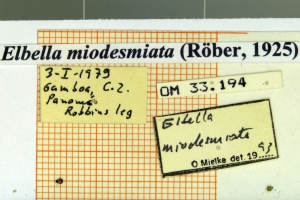 Elbella miodesmiata (Röber, 1925)
3-I-1979
Gamboa, C.Z.
Panama
Robbins leg
OM 33.194
Elbella
miodesmiata
O Mielke det. 19 93